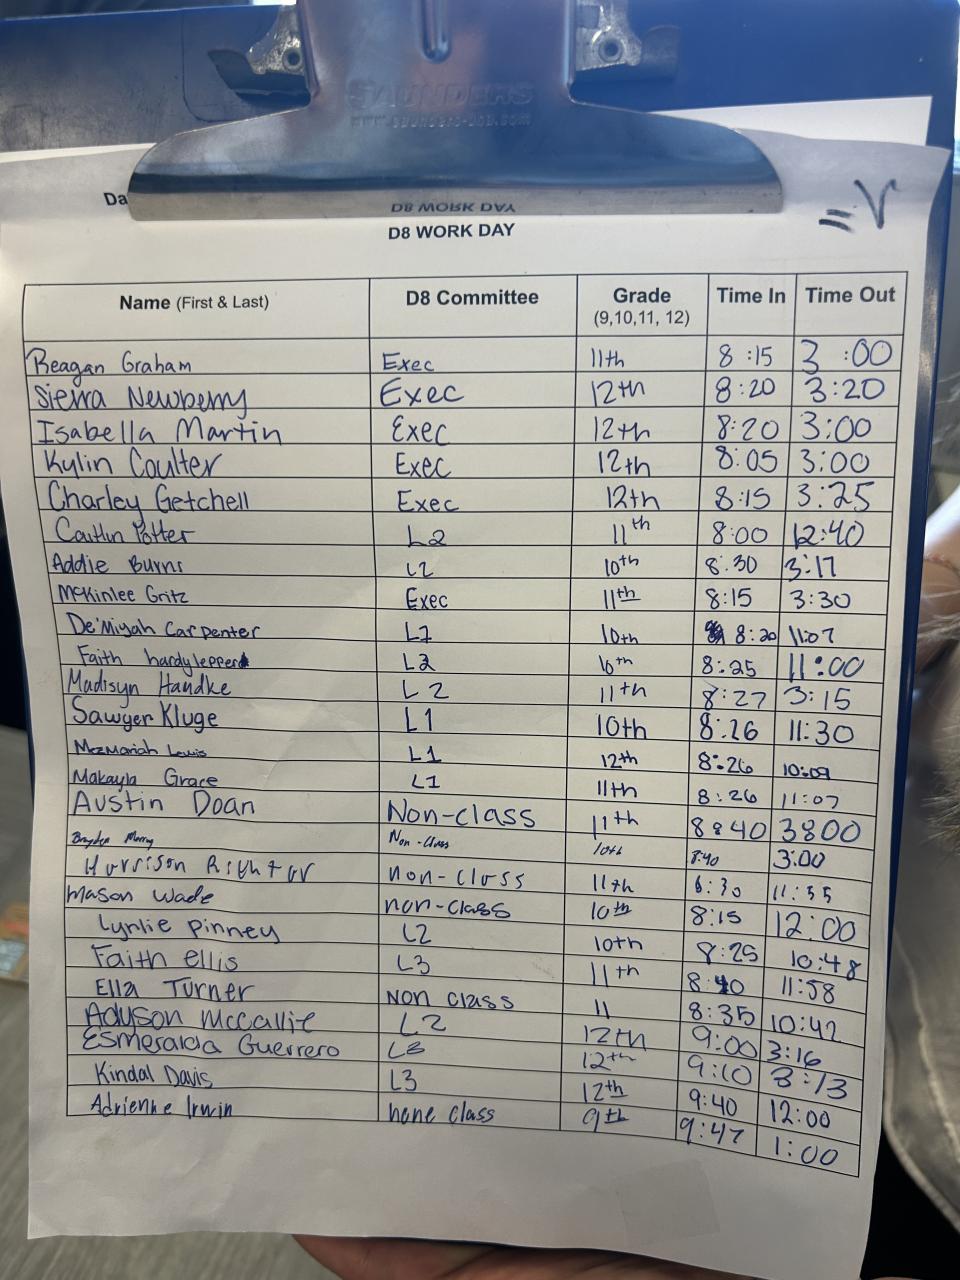 SAUNDERS
www.saunders-usa.com
Da
D8 WORK DAY
D8 WORK DAY
Name (First & Last) D8 Committee Grade (9,10,11, 12) Time In Time Out
Reagan Graham Exec 11th 8:15 3:00
Sierra Newberry Exec 12th 8:20 3:20
Isabella Martin Exec 12th 8:20 3:00
Kylin Coulter Exec 12th 8:05 3:00
Charley Getchell Exec 12th 8:15 3:25
Caitlin Potter L2 11th 8:00 12:40
Addie Burns L2 10th 8:30 3:17
McKinlee Gritz Exec 11th 8:15 3:30
De'Miyah Carpenter L1 10th 8:20 11:07
Faith hardylepperd L2 10th 8:25 11:00
Madisyn Handke L2 11th 8:27 3:15
Sawyer Kluge L1 10th 8:26 11:30
MezMariah Lewis L1 12th 8:26 10:09
Makayla Grace L1 11th 8:26 11:07
Austin Doan Non-class 11th 8:40 3:00
Brayden Non-class 10th 8:40 3:00
Harrison Rightar non-class 11th 8:30 11:35
Mason Wade non-class 10th 8:15 12:00
Lynlie Pinney L2 10th 8:25 10:48
Faith ellis L3 11th 8:40 11:58
Ella Turner Non class 11 8:35 10:42
Adyson McCallie L2 12th 9:00 3:16
Esmeralda Guerrero L3 12th 9:10 3:13
Kindal Davis L3 12th 9:40 12:00
Adrienne Irwin none class 9th 9:47 1:00